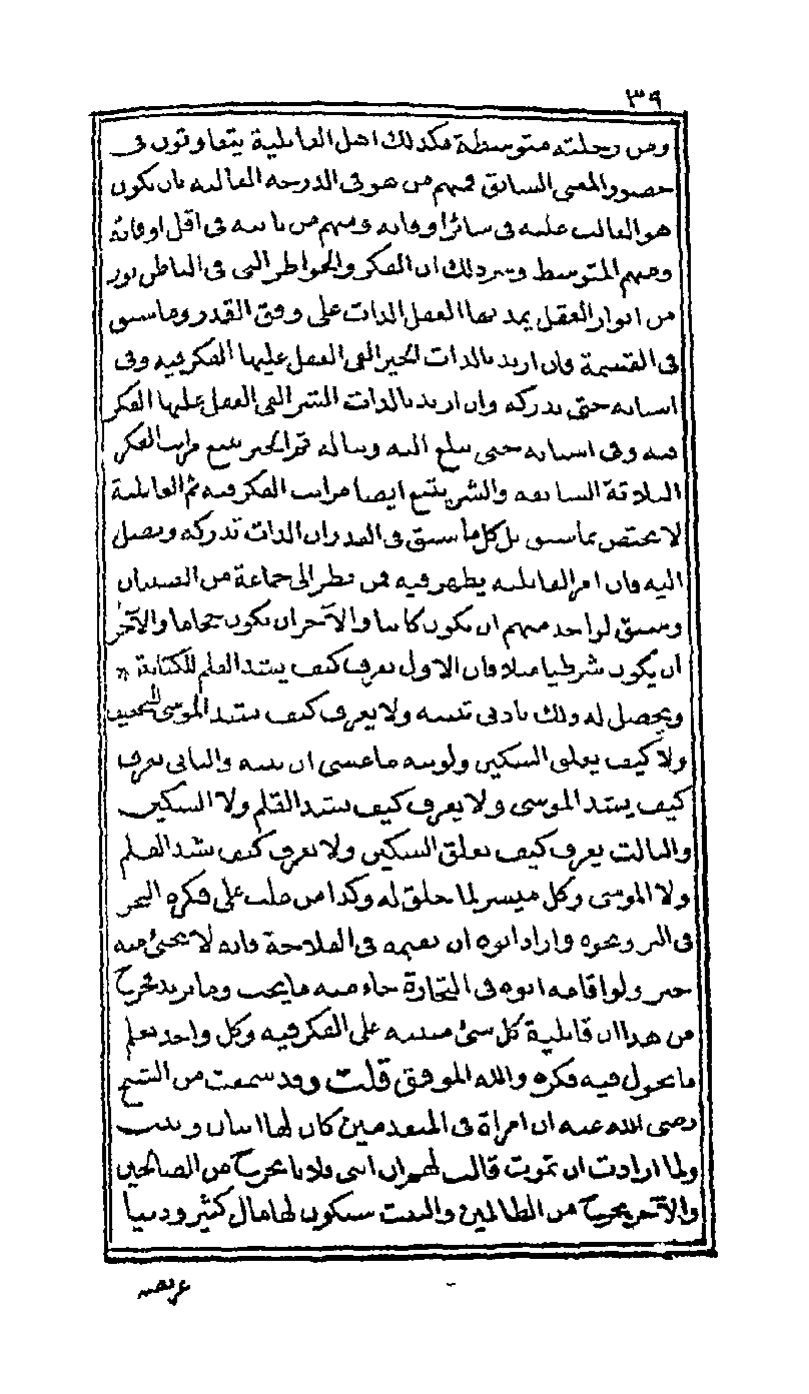 ٣٩
ومن رحلته متوسطة فكذلك اهل القابلية يتفاوتون فى
حضور المعنى السابق فمنهم من هو فى الدرجه العاليه بان يكون
هو الغالب عليه فى سائر اوقاته ومنهم من ياتيه فى اقل اوقاته
ومنهم المتوسط وسر ذلك ان الفكر والخواطر التى فى الباطن نور
من انوار العقل يمد بها العقل الذات على وفق القدر وما سبق
فى القسمة فان اريد بالذات الخير القى العقل عليها الفكر فيه وفى
اسبابه حتى تدركه وان اريد بالذات الشر القى العقل عليها الفكر
فيه وفى اسبابه حتى تبلغ اليه وتناله فمر الخير تتبع مراتب الفكر
الثلاثة السابقه والشر يتبع ايضا مراتب الفكر فيه ثم القابلية
لا تختص بما سبق بل كل ما سبق فى القدر ان الذات تدركه وتصل
اليه فان امر القابليه يظهر فيه فمن نظر الى جماعة من الصبيان
وسبق لواحد منهم ان يكون كاتبا والآخر ان يكون حجاما والآخر
ان يكون شرطيا مثلا فان الاول يعرف كيف يشد القلم للكتابة
ويحصل له ذلك بادنى تنبيه ولا يعرف كيف يشد الموسى للتحفيف
ولا كيف يعلق السكين ولو نبه ما عسى ان ينبه والثانى يعرف
كيف يشد الموسى ولا يعرف كيف يشد القلم ولا السكين
والثالث يعرف كيف يعلق السكين ولا يعرف كيف يشد القلم
ولا الموسى وكل ميسر لما خلق له وكذا من غلب على فكره التجر
فى البر ونحوه واراد ابوه ان يقيمه فى الفلاحة فانه لا يجئ منه
خير ولو اقامه ابوه فى التجارة جاء منه ما يحب وما يريد فخرج
من هذا ان قابلية كل شئ مبنيه على الفكر فيه وكل واحد يعلم
ما يجول فيه فكره والله الموفق قلت وقد سمعت من الشيخ
رضى الله عنه ان امراة فى المتقدمين كان لها ابنان وبنت
ولما ارادت ان تموت قالت لهم ان ابنى فلانا يخرج من الصالحين
والآخر يخرج من الظالمين والبنت سيكون لها مال كثير ودنيا
عريضه